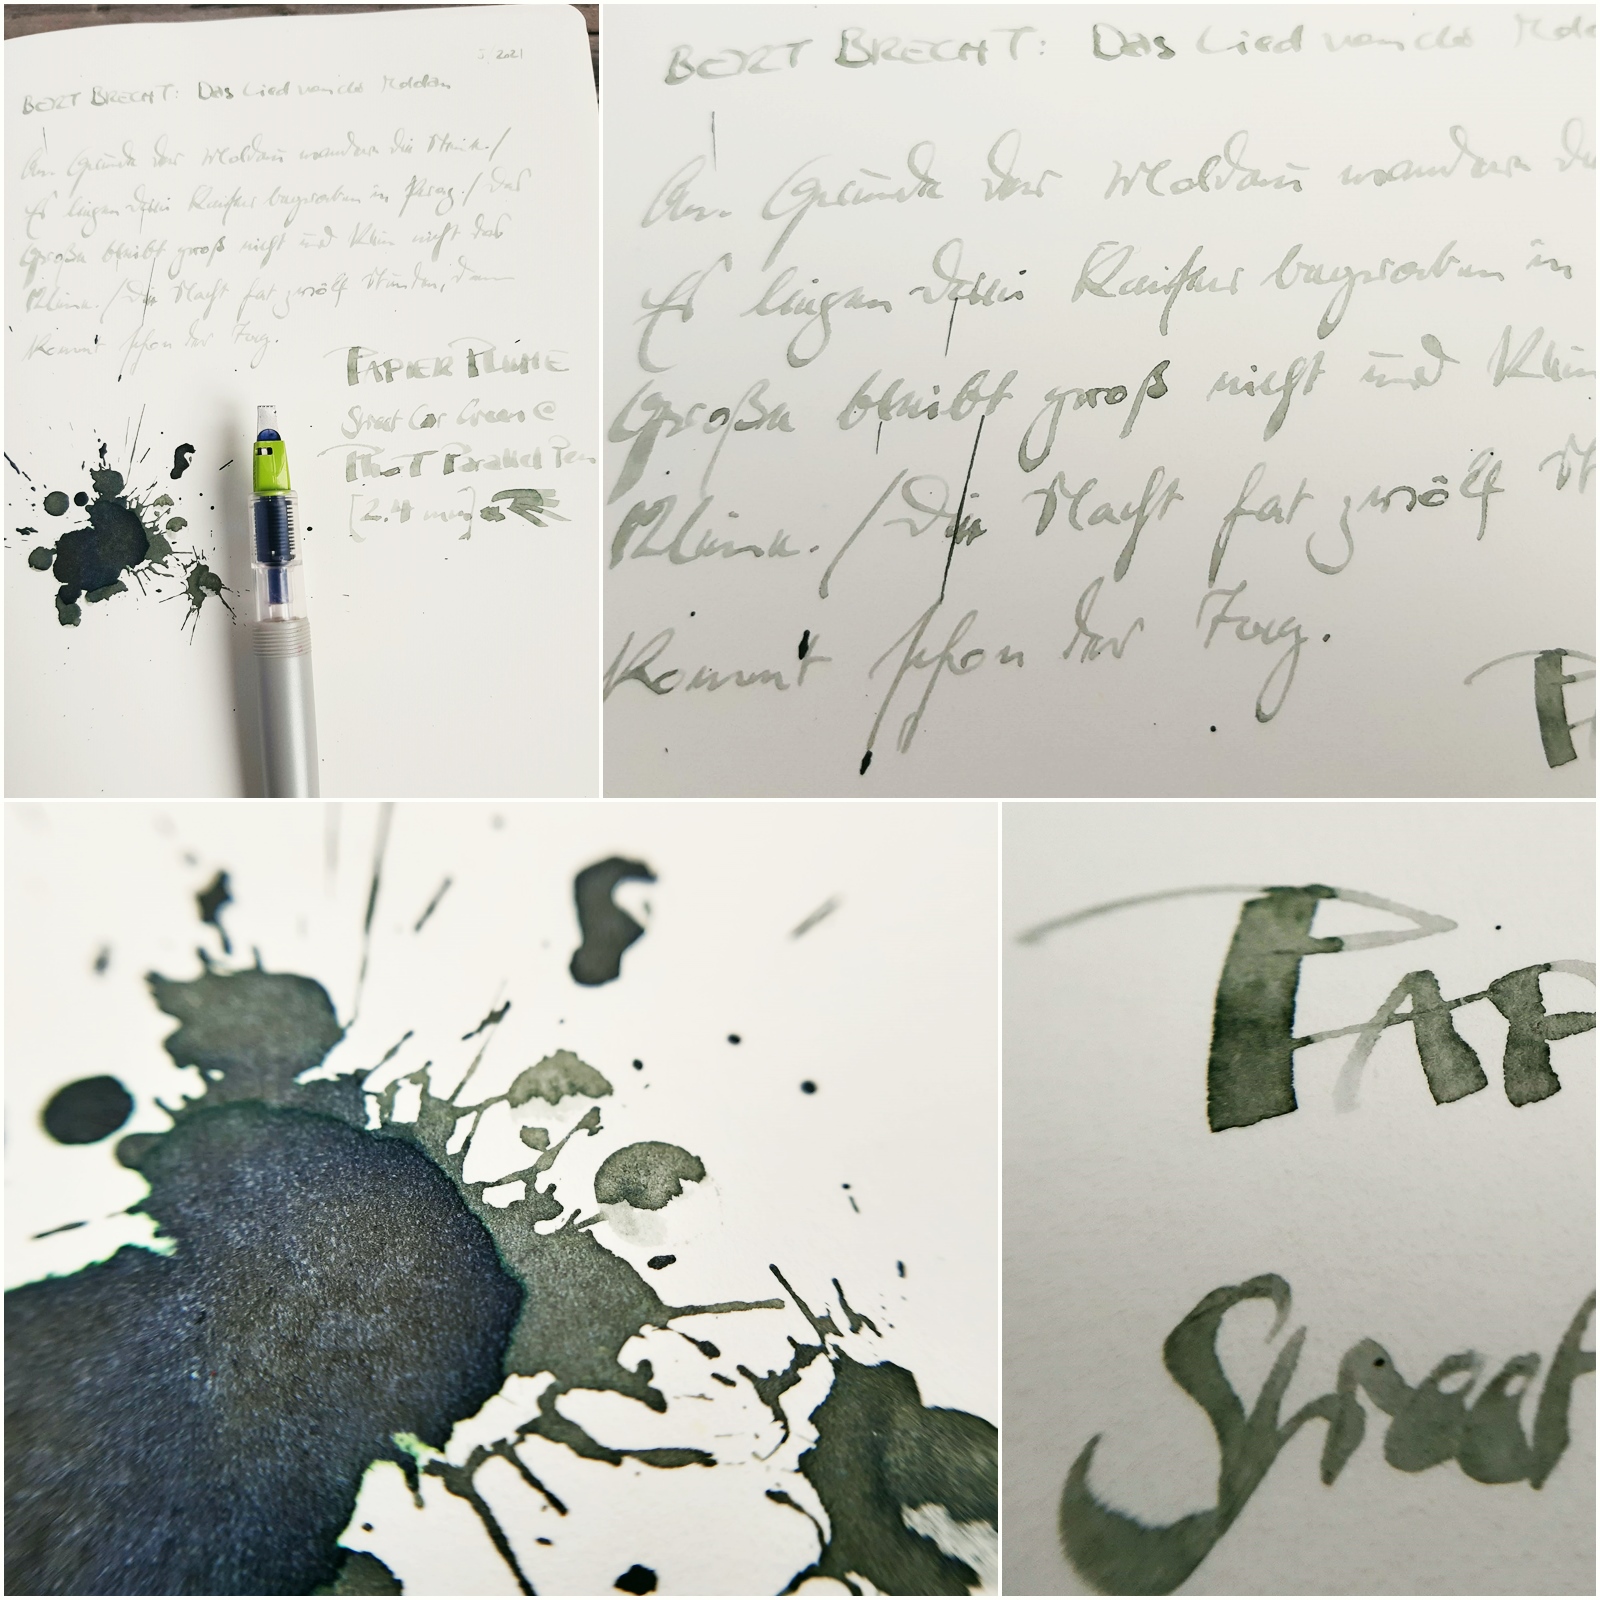 5/2021
BERT BRECHT: Das Lied von der Moldau
Am Grunde der Moldau wandern die Steine./
Es liegen drei Kaiser begraben in Prag./ Das
Große bleibt groß nicht und klein nicht das
Kleine./ Die Nacht hat zwölf Stunden, dann
kommt schon der Tag.
PAPIER PLUME
Street Car Green @
PILOT Parallel Pen
[2.4 mm]
BERT BRECHT: Das Lied von der Mold
Am Grunde der Moldau wandern di
Es liegen drei Kaiser begraben in
Große bleibt groß nicht und klein
Kleine./ Die Nacht hat zwölf St
kommt schon der Tag.
PAP
Street